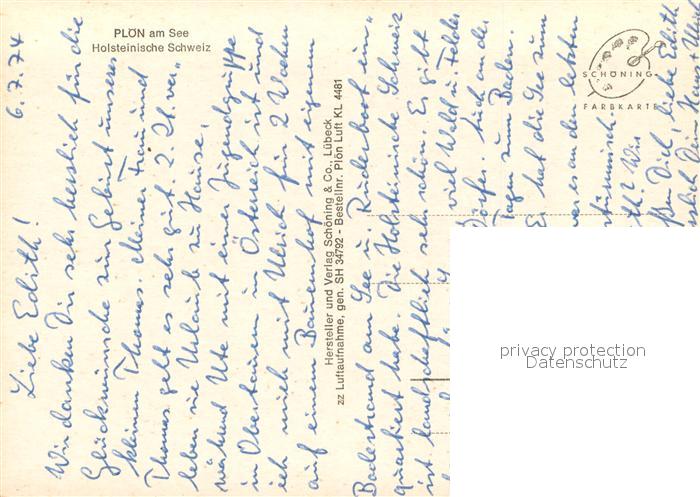 PLÖN am See
Holsteinische Schweiz
SCHÖNING-
FARBKARTE
Hersteller und Verlag Schöning & Co., Lübeck
zz Luftaufnahme, gen. SH 34792 - Bestellnr. Plön Luft KL 4481
6.7.74
Liebe Edith!
Wir danken Dir sehr herzlich für die
Glückwünsche zur Geburt unseres
kleinen Thomas. Meiner Frau und
Thomas geht es sehr gut. Z. Zt. ver-
leben sie Urlaub zu Hause,
während Ute mit einer Jugendgruppe
in Obertauern in Österreich ist und
ich mich mit Ulrich für 2 Wochen
auf einem Bauernhof mit eigen
Badestrand am See u. Ruderboot ein-
quartiert habe. Die Holsteinische Schweiz
ist landschaftlich sehr schön. Es gibt
viel Wald u. Felder
Dörfer. Auch an der
Tagen zum Baden.
Er hat die See zum
war es an den letzten
stürmisch.
Wir
ßen Dich, liebe Edith
Dein
privacy protection
Datenschutz